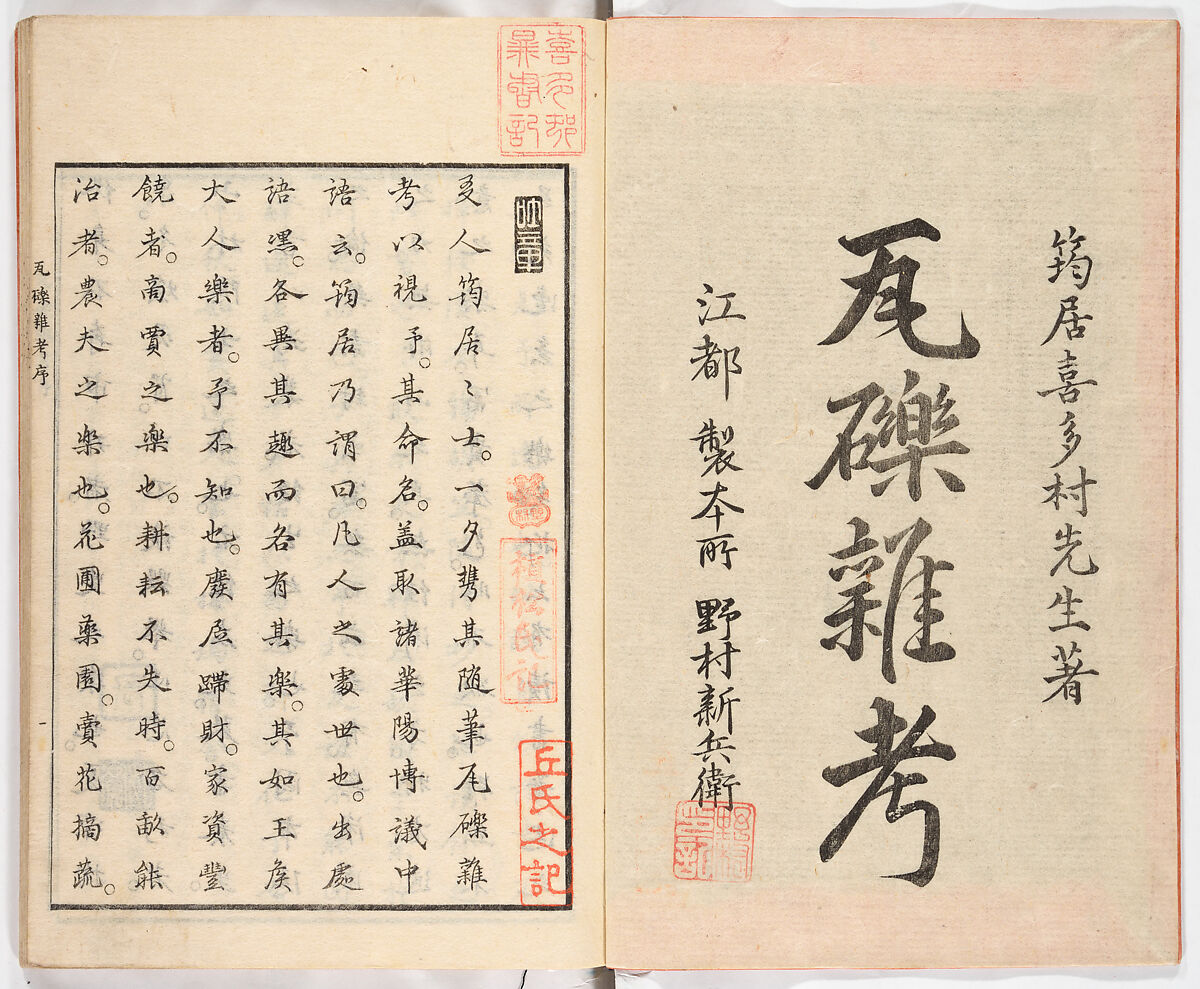 筠居喜多村先生著
瓦礫雜考
江都 製本所 野村新兵衛
友人筠居〻士。一夕携其随筆瓦礫雜
考以視予。其命名。盖取諸華陽博議中
語云。筠居乃謂曰。凡人之處世也。出處
語嘿。各異其趣而各有其樂。其如王侯
大人樂者。予不知也。廢居蹛財。家資豐
饒者。商賈之樂也。耕耘不失時。百畝能
治者。農夫之樂也。花圃藥園。賣花摘蔬。
瓦礫雜考序
一
丘氏之記